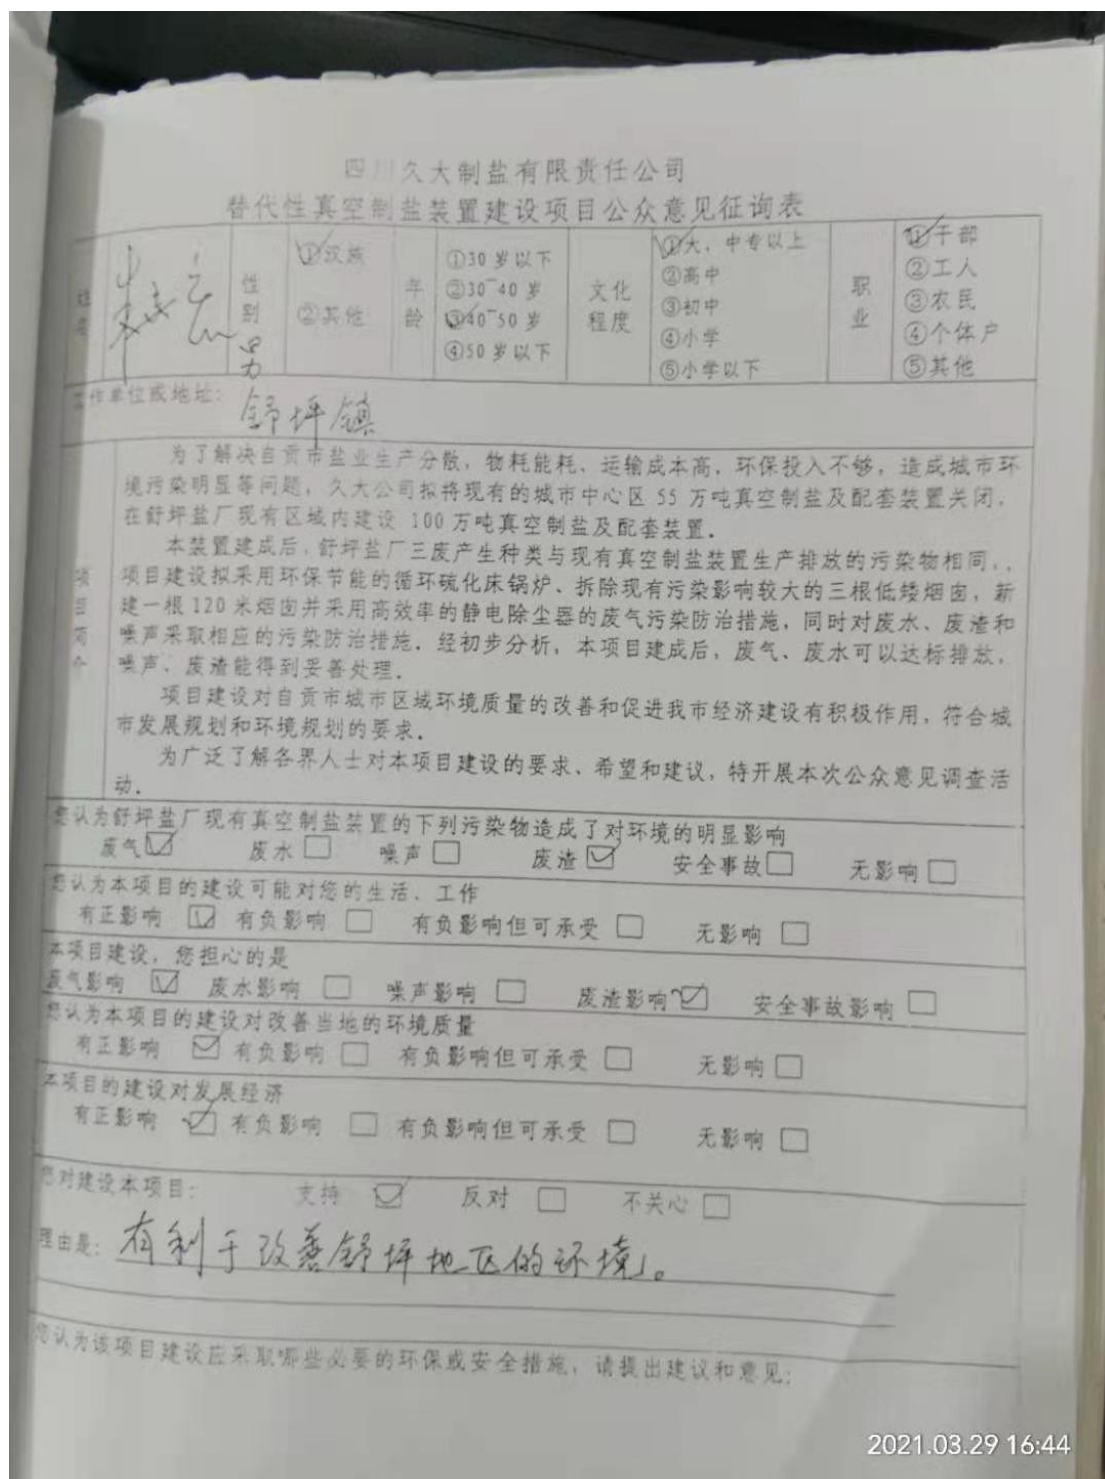 四川久大制盐有限责任公司
替代性真空制盐装置建设项目公众意见征询表
姓名
性别 男
①汉族
②其他
年龄
①30岁以下
②30-40岁
③40-50岁
④50岁以下
文化程度
①大、中专以上
②高中
③初中
④小学
⑤小学以下
职业
①干部
②工人
③农民
④个体户
⑤其他
工作单位或地址: 舒坪镇
项目简介
为了解决自贡市盐业生产分散,物耗能耗、运输成本高,环保投入不够,造成城市环
境污染明显等问题,久大公司拟将现有的城市中心区 55 万吨真空制盐及配套装置关闭,
在舒坪盐厂现有区域内建设 100 万吨真空制盐及配套装置.
本装置建成后,舒坪盐厂三废产生种类与现有真空制盐装置生产排放的污染物相同,,
项目建设拟采用环保节能的循环硫化床锅炉、拆除现有污染影响较大的三根低矮烟囱,新
建一根 120 米烟囱并采用高效率的静电除尘器的废气污染防治措施,同时对废水、废渣和
噪声采取相应的污染防治措施.经初步分析,本项目建成后,废气、废水可以达标排放,
噪声、废渣能得到妥善处理.
项目建设对自贡市城市区域环境质量的改善和促进我市经济建设有积极作用,符合城
市发展规划和环境规划的要求.
为广泛了解各界人士对本项目建设的要求、希望和建议,特开展本次公众意见调查活
动.
您认为舒坪盐厂现有真空制盐装置的下列污染物造成了对环境的明显影响
废气☑ 废水□ 噪声□ 废渣☑ 安全事故□ 无影响□
您认为本项目的建设可能对您的生活、工作
有正影响 ☑ 有负影响 □ 有负影响但可承受 □ 无影响 □
本项目建设,您担心的是
废气影响 ☑ 废水影响 □ 噪声影响 □ 废渣影响 ☑ 安全事故影响 □
您认为本项目的建设对改善当地的环境质量
有正影响 ☑ 有负影响 □ 有负影响但可承受 □ 无影响 □
本项目的建设对发展经济
有正影响 ☑ 有负影响 □ 有负影响但可承受 □ 无影响 □
您对建设本项目: 支持 ☑ 反对 □ 不关心 □
理由是: 有利于改善舒坪地区的环境。
您认为该项目建设应采取哪些必要的环保或安全措施,请提出建议和意见:
2021.03.29 16:44